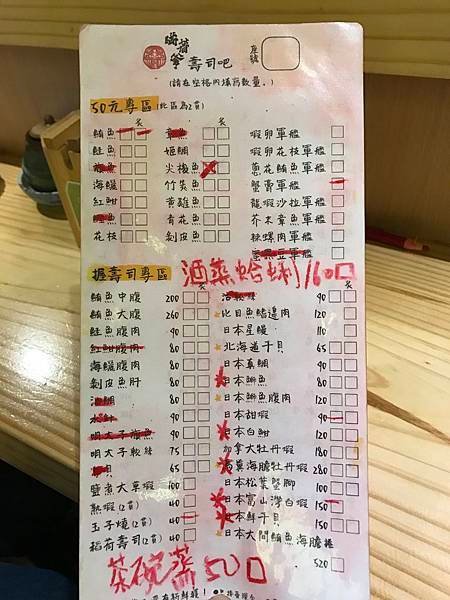 壽司吧
座號
(請在空格內填寫數量。)
50元專區(此區為2貫)
炙
炙
鮪魚
章魚
蝦卵軍艦
鮭魚
姬鯛
蝦卵花枝軍艦
尖梭魚
蔥花鮪魚軍艦
海鱺
竹筴魚
蟹膏軍艦
紅魽
黃雞魚
龍蝦沙拉軍艦
青花魚
芥末章魚軍艦
花枝
剝皮魚
辣螺肉軍艦
握壽司專區
酒蒸蛤蜊 160
炙
炙
鮪魚中腹 200
90
鮪魚大腹 260
比目魚鰭邊肉 120
鮭魚腹肉 90
日本星鰻 110
紅魽腹肉 80
北海道干貝 65
海鱺腹肉 80
日本真鯛 90
剝皮魚肝 80
日本鰤魚 90
油鯛 90
日本鰤魚腹肉 120
水針 90
日本甜蝦 90
明太子海魚 90
日本白魽 120
明太子軟絲 75
加拿大牡丹蝦 180
65
海膽牡丹蝦 280
鹽煮大草蝦 100
日本松葉蟹腳 100
熟蝦(2貫) 40
日本富山灣白蝦 150
玉子燒(2貫) 40
日本鮮干貝 150
稻荷壽司(2貫) 40
日本大間鮪魚海膽握 520
茶碗蒸 50